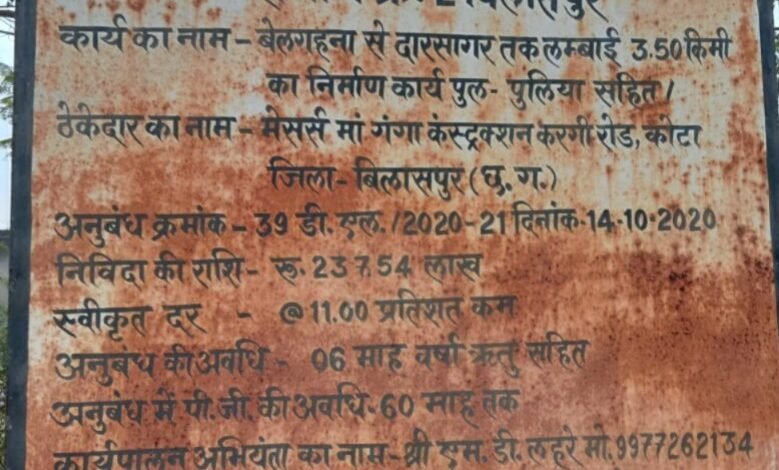 कार्य का नाम - बेलगहना से दारसागर तक लम्बाई 3.50 किमी
का निर्माण कार्य पुल- पुलिया सहित।
ठेकेदार का नाम - मेसर्स मां गंगा कंस्ट्रक्शन करगी रोड, कोटा
जिला- बिलासपुर (छ.ग.)
अनुबंध क्रमांक - 39 डी.एल./2020-21 दिनांक-14-10-2020
निविदा की राशि - रू. 237.54 लाख
स्वीकृत दर - @ 11.00 प्रतिशत कम
अनुबंध की अवधि - 06 माह वर्षा ऋतु सहित
अनुबंध में पी.जी. की अवधि-60 माह तक
कार्यपालन अभियंता का नाम-श्री एम.डी. लहरे मो.9977262134